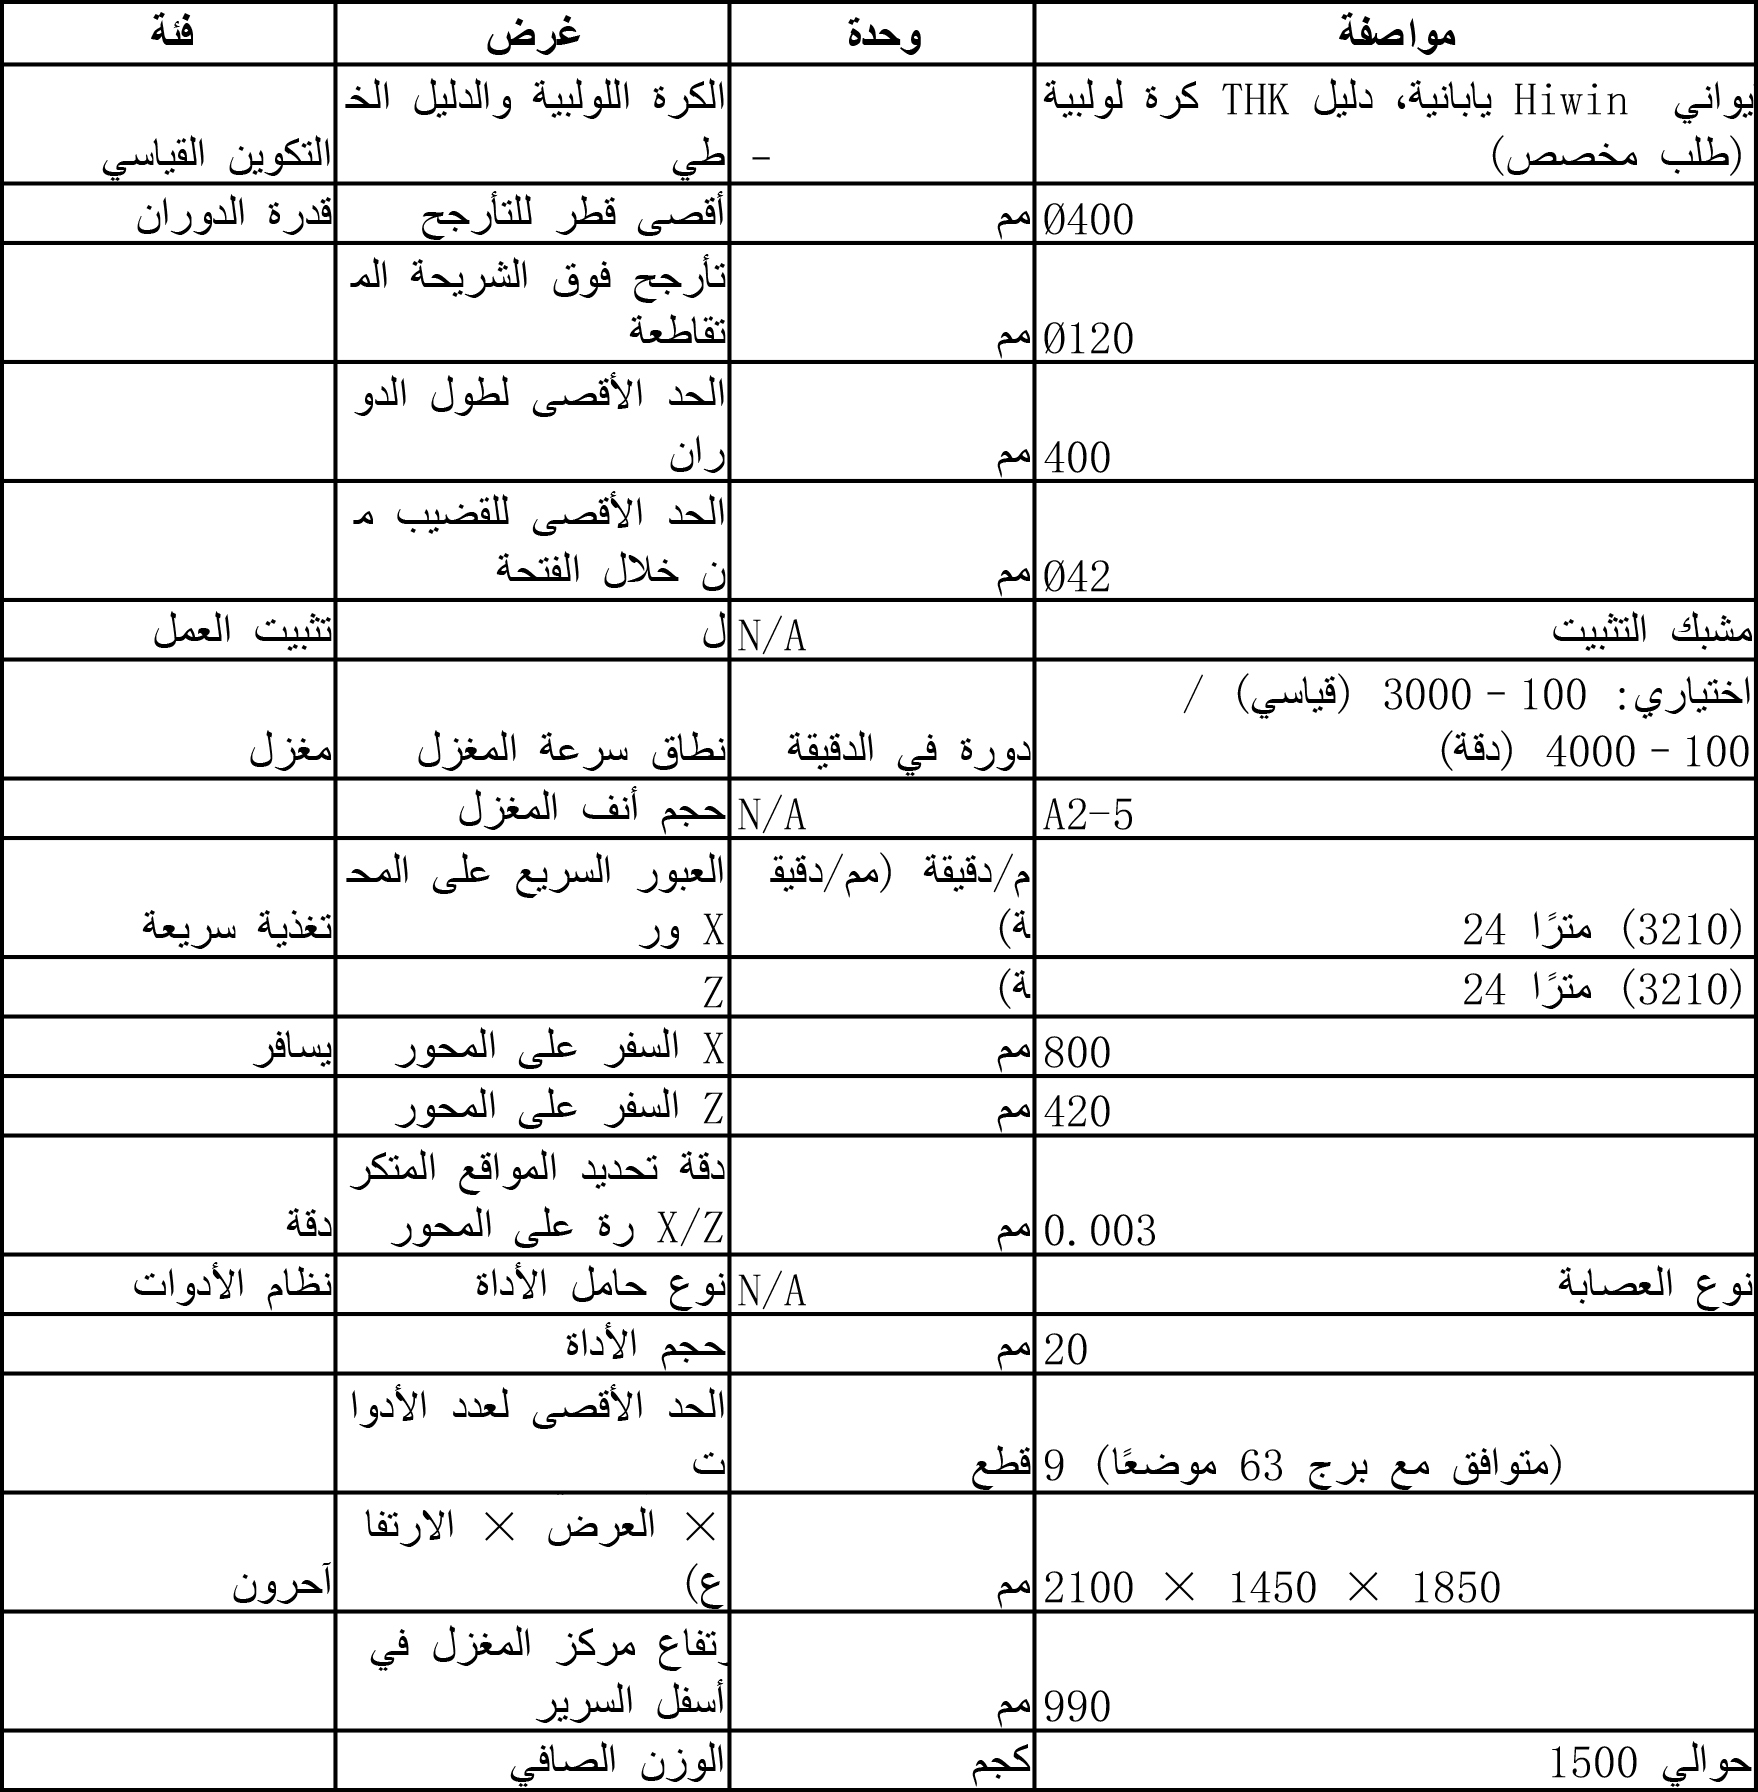 فئة
غرض
وحدة
مواصفة
التكوين القياسي
الكرة اللولبية والدليل الخ
طي
-
يواني Hiwin يابانية، دليل THK كرة لولبية
(طلب مخصص)
قدرة الدوران
أقصى قطر للتأرجح
مم
Ø400
تأرجح فوق الشريحة الم
تقاطعة
مم
Ø120
الحد الأقصى لطول الدو
ران
مم
400
الحد الأقصى للقضيب م
ن خلال الفتحة
مم
Ø42
تثبيت العمل
ل
N/A
مشبك التثبيت
مغزل
نطاق سرعة المغزل
دورة في الدقيقة
اختياري: 100 - 3000 (قياسي) /
100 - 4000 (دقة)
حجم أنف المغزل
N/A
A2-5
تغذية سريعة
العبور السريع على المح
ور X
م/دقيقة (مم/دقيق
ة)
24 مترًا (3210)
Z
ة)
24 مترًا (3210)
يسافر
السفر على المحور X
مم
800
السفر على المحور Z
مم
420
دقة
دقة تحديد المواقع المتكر
رة على المحور X/Z
مم
0.003
نظام الأدوات
نوع حامل الأداة
N/A
نوع العصابة
حجم الأداة
مم
20
الحد الأقصى لعدد الأدوا
ت
قطع
9 (متوافق مع برج 63 موضعًا)
آحرون
× العرض × الارتفا
ع)
مم
2100 × 1450 × 1850
رتفاع مركز المغزل في
أسفل السرير
مم
990
الوزن الصافي
كجم
حوالي 1500